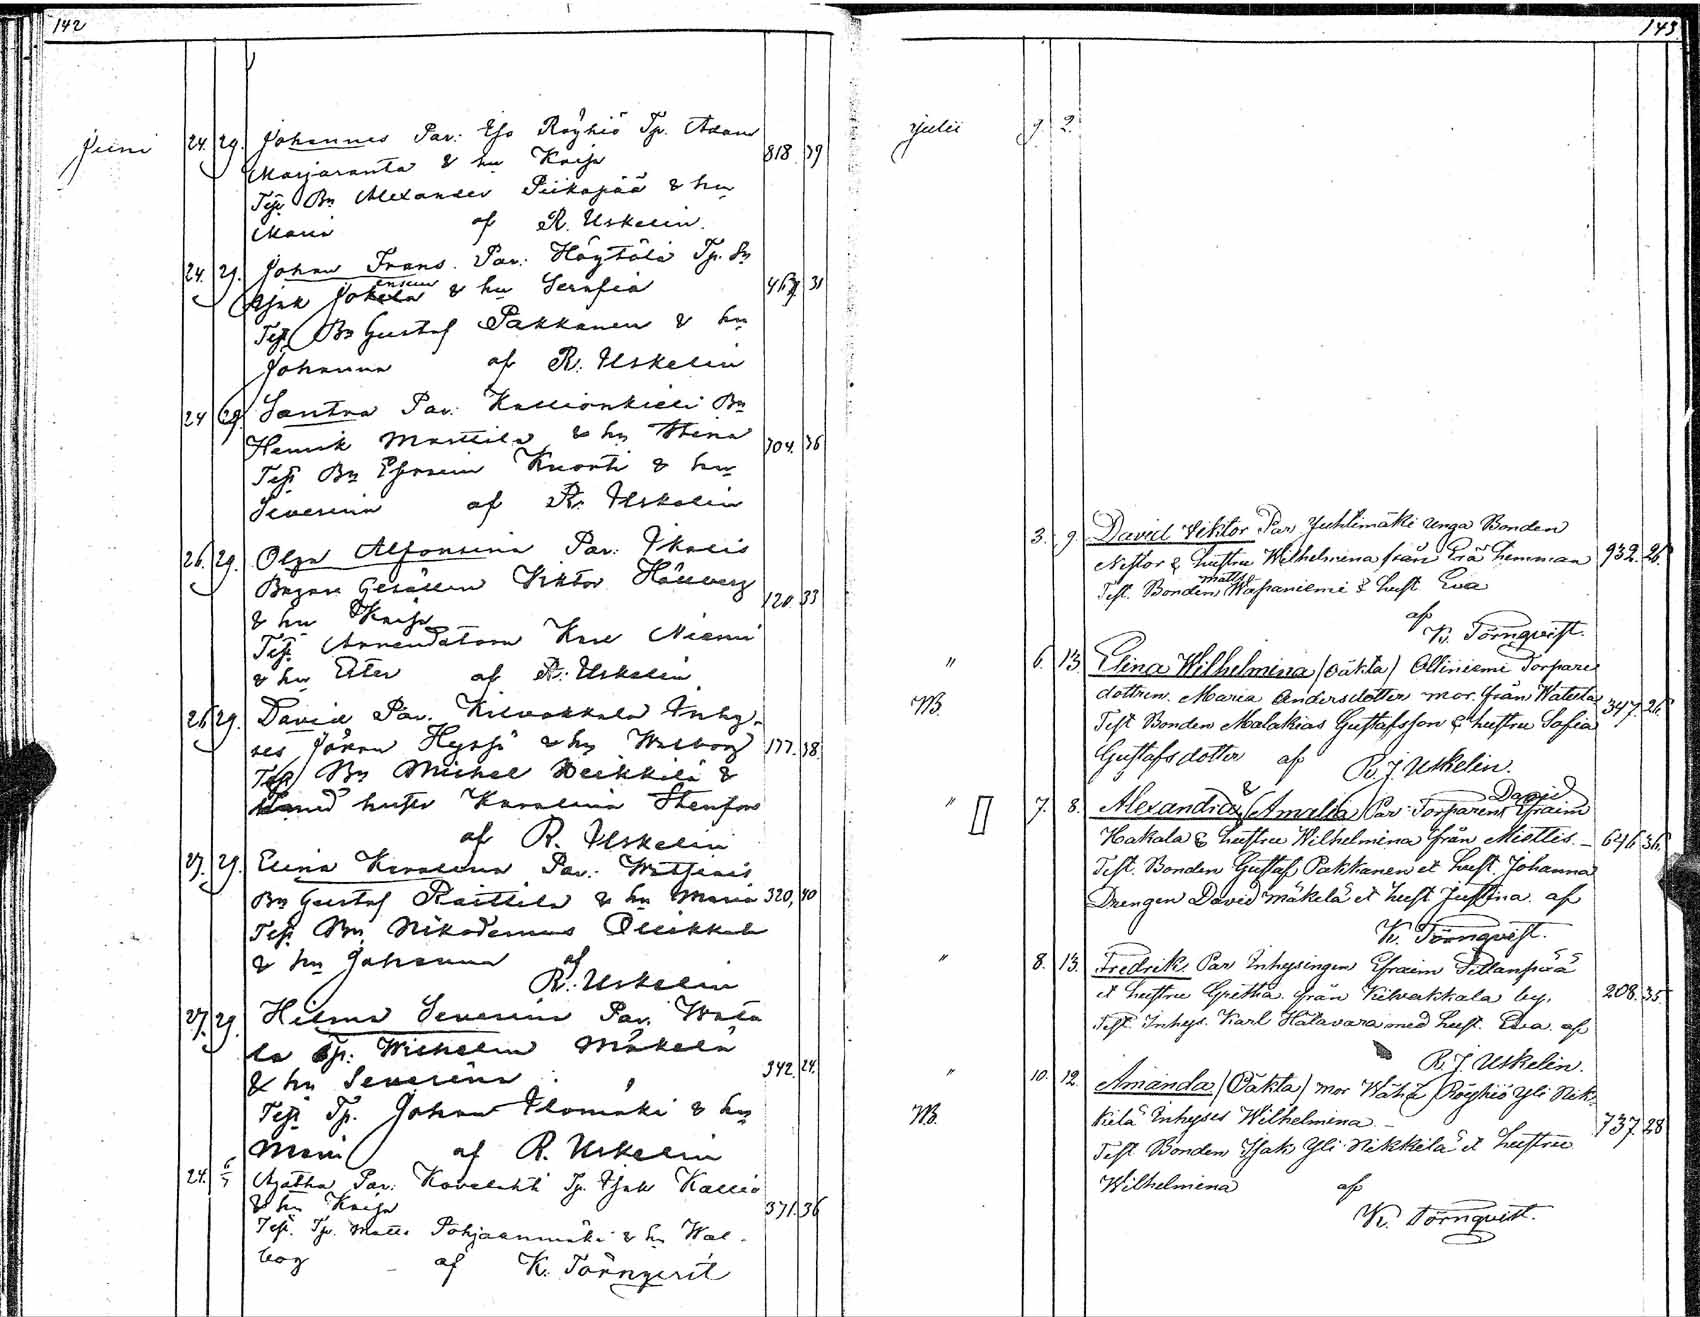 142
Juni 24. 29. Johannes Par: Efo Röyhiö Tp. Adam
Marjaranta & hu Kaisa 818 39
Test Bn Alexander Piikapää & hu
Maria af R. Uskelin.
24. 29. Johan Frans. Par: Höytölä Tp. Sn
Isak & hu Serafia 467 31
Test Bn Gustaf Pakkanen & hu
Johanna af R. Uskelin
24 29 Santra Par: Kallionkieli Bn
Henrik Marttila & hu Stina 704. 36
Test Bn Efraim Knorti & hu
Severina af R. Uskelin
26. 29. Olga Alfonsina Par: Ikalis
Bagare Gesällen Viktor Hällberg
& hu Kaisa 120. 33
Test Arrendatorn Karl Niemi
& hu Ester af R. Uskelin
26 29. David Par. Kilvakkala Inhy-
ses Jöran & hu Walborg 177. 38
Test Bn Michel Heikkilä &
hustr Karolina Stenfors
af R. Uskelin
27. 29. Elina Karolina Par.
Bn Gustaf Raittila & hu Maria 320, 40
Test Bn Nikodemus
& hu Johanna af
R. Uskelin
27. 29. Hilma Severina Par. Wata
la Tp: Wilhelm Mäkelä
& hu Severina 342. 24.
Test Tp. Johan Ilomäki & hu
Maria af R. Uskelin
24. 6/7 Agatha Par: Kovelahti Tp. Isak Kallio
& hu Kaisa 371. 36
Test. Tp. Matts Pohjaanmäki & hu Wal-
borg af K. Törnqvist
143
Julii 9. 2.
3. 9. David Viktor Par Juhtimäki unga Bonden
Nestor & hustru Wilhelmina från Erä hemman 932. 26.
Matts
Test. Bonden Wapaniemi & hust Eva
af
K. Törnqvist.
" 6. 13. Elina Wilhelmina (oäkta) Alliniemi Torpare
W.B. dottren Maria Andersdotter mor. från Watula 347. 26.
Test Bonden Malakias Gustafsson & hustru Sofia
Gustafsdotter af R. J. Uskelin.
David
" 7. 8. Alexandra & Amalia Par: Torparen Efraim
Hakala & hustru Wilhelmina från Miettis. — 646 36.
Test. Bonden Gustaf Pakkanen et hust. Johanna
Drengen David Mäkelä et hust Justina af
K. Törnqvist.
" 8. 13. Fredrik. Par Inhysingen Efraim Sillanpää
et hustru Gretha från Kilvakkala by. 208. 35.
Test. Inhys. Karl Hatavara med hust. Eva af
R. J. Uskelin.
" 10. 12. Amanda (Oäkta) mor Wähä Röyhiö Yli Nik-
W.B. kilä Inhyses Wilhelmina — 737. 28
Test Bonden Isak Yli Nikkilä et hustru
Wilhelmina af
K. Törnqvist.